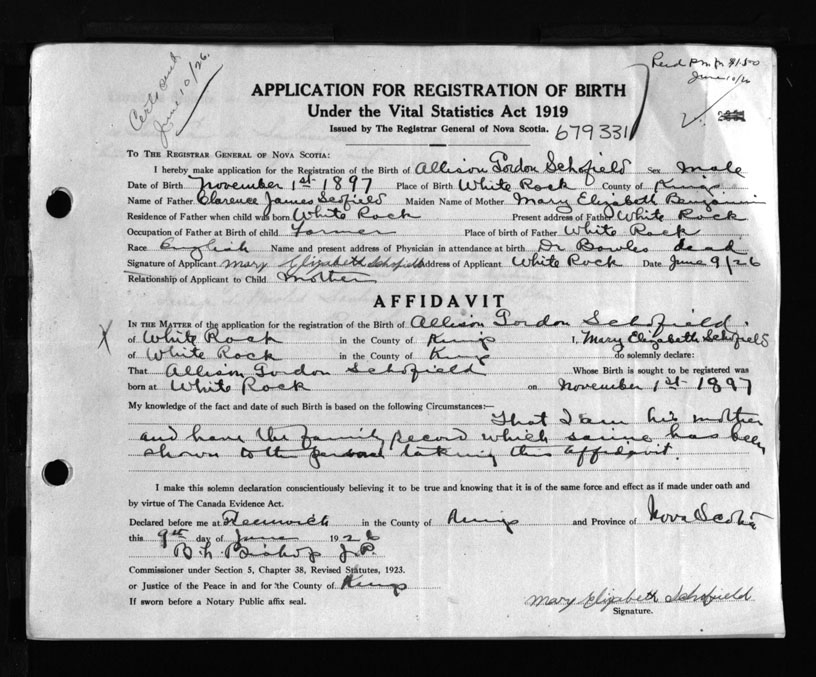 Cert issued
June 10/26.
Recd P.M. fr $1.50
June 10/26
APPLICATION FOR REGISTRATION OF BIRTH
Under the Vital Statistics Act 1919
Issued by The Registrar General of Nova Scotia.
679331
TO THE REGISTRAR GENERAL OF NOVA SCOTIA:
I hereby make application for the Registration of the Birth of Allison Gordon Schofield Sex Male
Date of Birth November 1st 1897 Place of Birth White Rock County of Kings
Name of Father Clarence James Scofield Maiden Name of Mother Mary Elizabeth Benjamin
Residence of Father when child was born White Rock Present address of Father White Rock
Occupation of Father at Birth of child Farmer Place of birth of Father White Rock
Race English Name and present address of Physician in attendance at birth Dr Bowles dead
Signature of Applicant Mary Elizabeth Schofield Address of Applicant White Rock Date June 9/26
Relationship of Applicant to Child mother
AFFIDAVIT
IN THE MATTER of the application for the registration of the Birth of Allison Gordon Schofield.
of White Rock in the County of Kings I, Mary Elizabeth Schofield
of White Rock in the County of Kings do solemnly declare:
That Allison Gordon Schofield Whose Birth is sought to be registered was
born at White Rock on November 1st 1897
My knowledge of the fact and date of such Birth is based on the following Circumstances:—
That I am his mother
and have the family record which same has been
shown to the person taking this affidavit.
I make this solemn declaration conscientiously believing it to be true and knowing that it is of the same force and effect as if made under oath and
by virtue of The Canada Evidence Act.
Declared before me at Greenwich in the County of Kings and Province of Nova Scotia
this 9th day of June 1926
B. h. Bishop J.P.
Commissioner under Section 5, Chapter 38, Revised Statutes, 1923.
or Justice of the Peace in and for the County of Kings
If sworn before a Notary Public affix seal.
Mary Elizabeth Schofield
Signature.